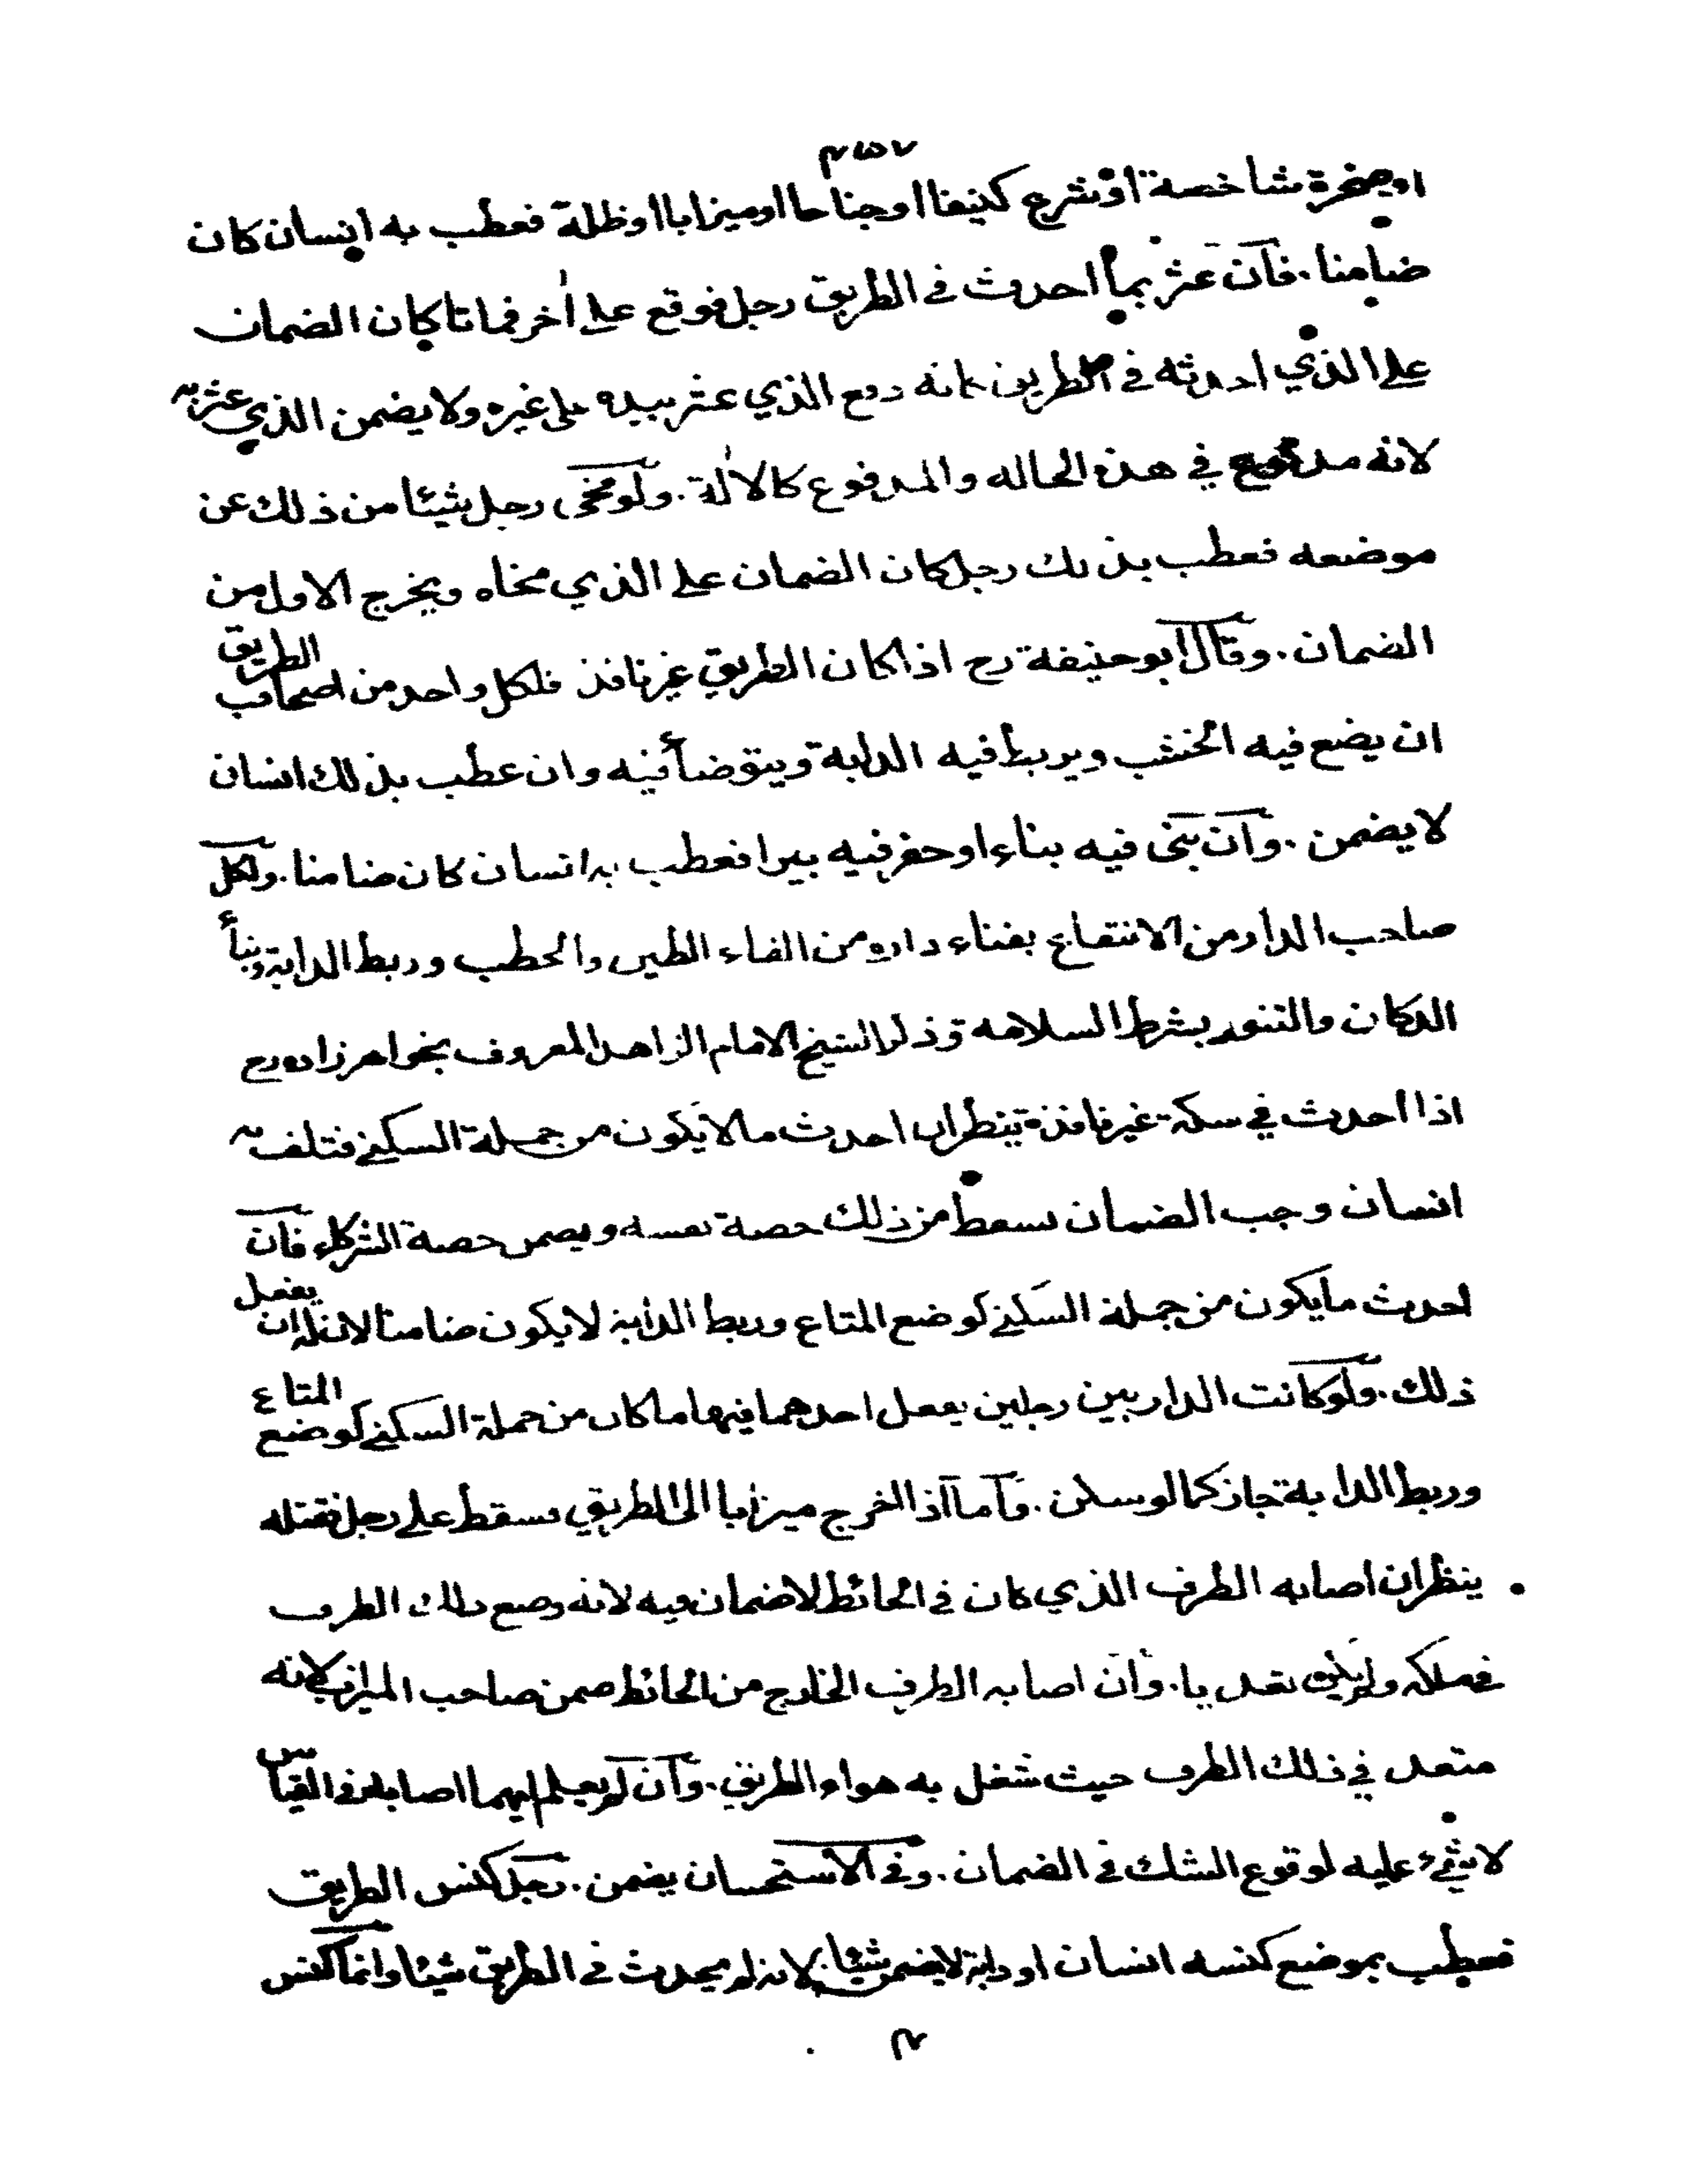 او صخرة شاخصة او شرع كنيفا او جناحا او ميزابا او ظلة فعطب به انسان كان
ضامنا. فان عثر بما احدث في الطريق رجل فوقع على اخر فماتا كان الضمان
على الذي احدثه في الطريق كانه دفع الذي عثر بيده على غيره ولا يضمن الذي عثر به
لانه مدفوع في هذه الحاله والمدفوع كالالة. ولو نحى رجل شيئا من ذلك عن
موضعه فعطب بذلك رجل كان الضمان على الذي نحاه ويخرج الاول من
الضمان. وقال ابو حنيفة رح اذا كان الطريق غير نافذ فلكل واحد من اصحاب الطريق
ان يضع فيه الخشب ويربط فيه الدابة ويتوضأ فيه وان عطب بذلك انسان
لا يضمن. وان بنى فيه بناء او حفر فيه بيرا فعطب به انسان كان ضامنا. ولكل
صاحب الدار من الانتفاع بفناء داره من القاء الطين والحطب وربط الدابة وبنأ
الدكان والتنور بشرط السلامه وذكر الشيخ الامام الزاهد المعروف بخواهرزاده رح
اذا احدث في سكة غير نافذة ينظر ان احدث ما لا يكون من جملة السكنى فتلف به
انسان وجب الضمان يسقط من ذلك حصة نفسه ويضمن حصة الشركاء فان
احدث ما يكون من جملة السكنى كوضع المتاع وربط الدابة لا يكون ضامنا لان له ان يفعل
ذلك. ولو كانت الدار بين رجلين يفعل احدهما فيها ما كان من جملة السكنى كوضع المتاع
وربط الدابة جاز كما لو سكن. واما اذا اخرج ميزابا الى الطريق يسقط على رجل فقتله
ينظر ان اصابه الطرف الذي كان في الحائط لا ضمان فيه لانه وضع ذلك الطرف
في ملكه ولم يكن تعديا. وان اصابه الطرف الخارج من الحائط ضمن صاحب الميزاب لانه
متعد في ذلك الطرف حيث شغل به هواء الطريق. وان لم يعلم ايهما اصابه في القياس
لا شيء عليه لوقوع الشك في الضمان. وفي الاستحسان يضمن. رجل كنس الطريق
فعطب بموضع كنسه انسان او دابة لا يضمن شيئا لانه لم يحدث في الطريق شيئا وانما كنس